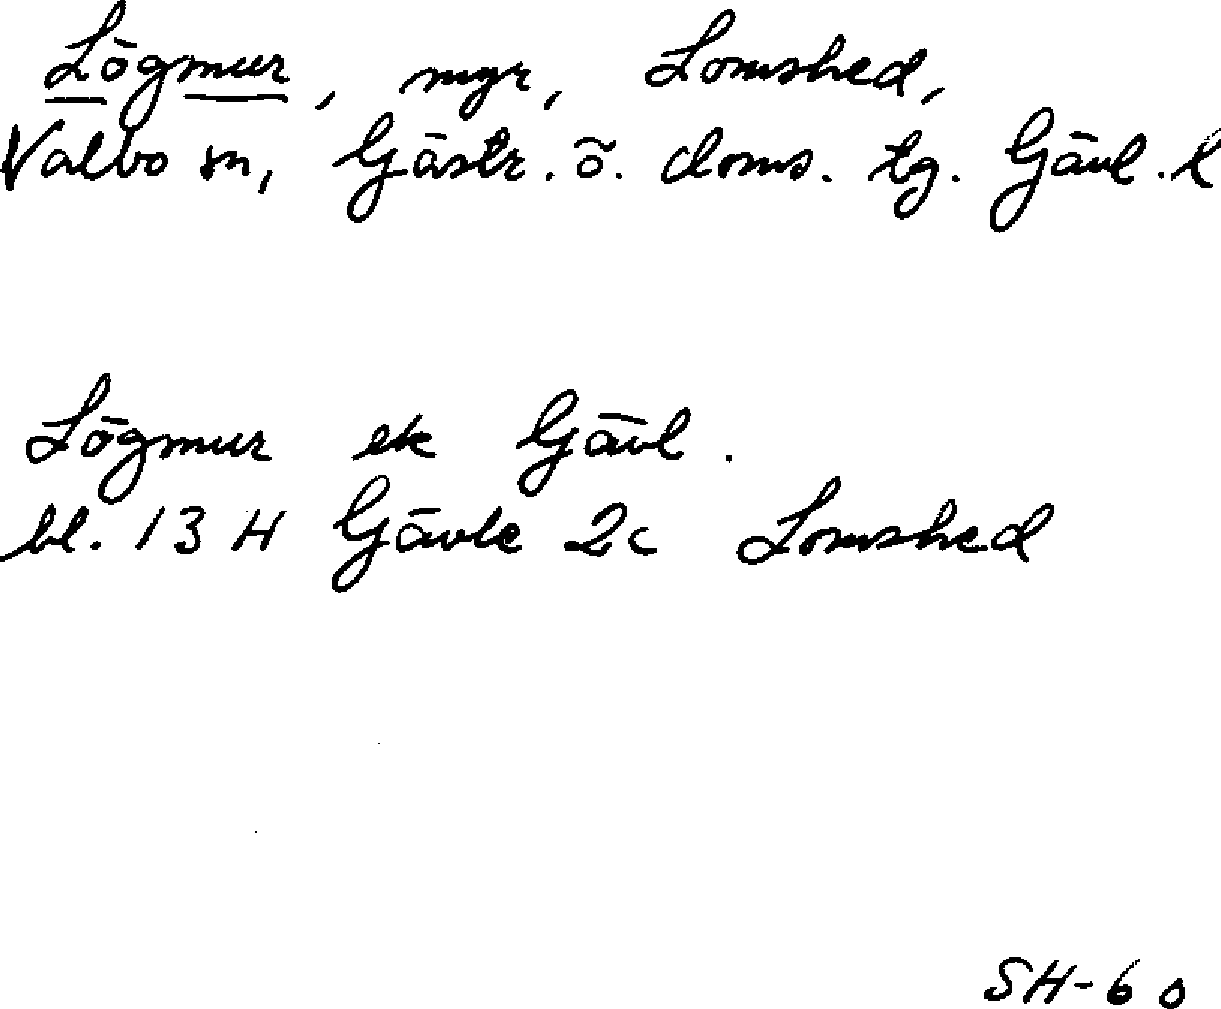 Lögmur, mgr, Lomshed,
Valbo sn, Gästr. ö. doms. tg. Gävl. l
Lögmur ek Gävl.
bl. 13 H Gävle 2c Lomshed
SH-60